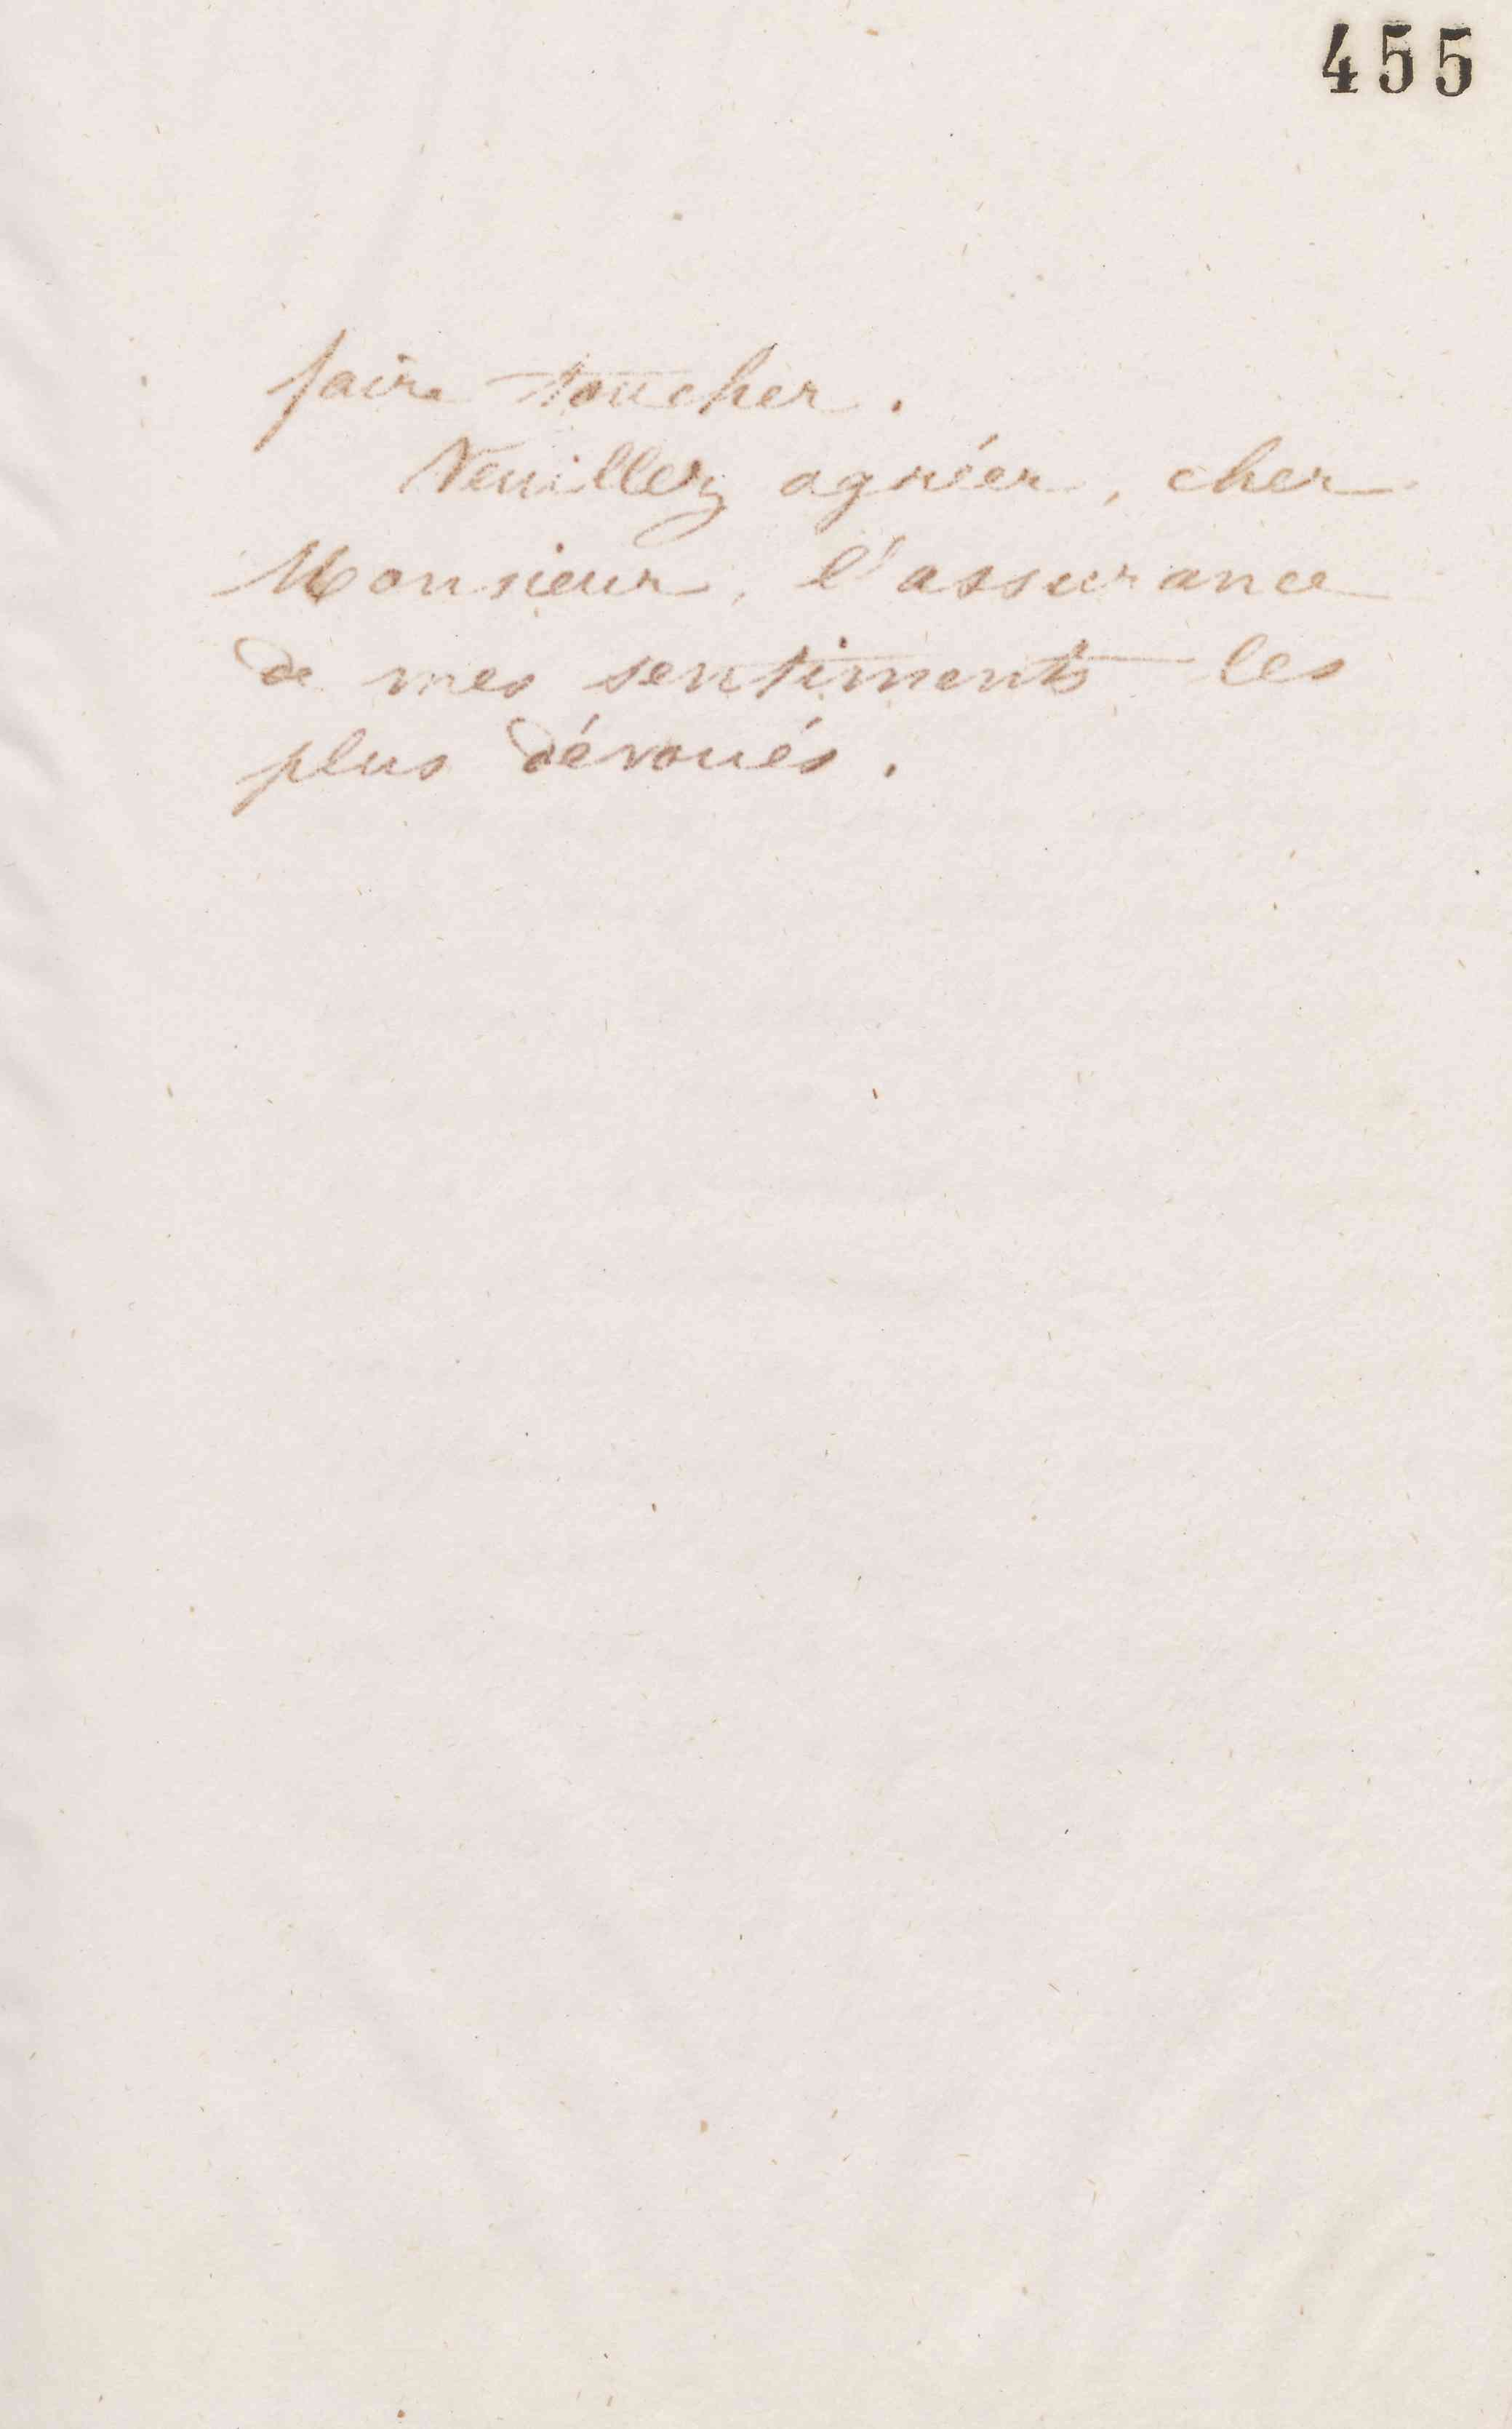 455
faire toucher.
Veuillez agréer, cher
Monsieur, l'assurance
de mes sentiments les
plus dévoués.